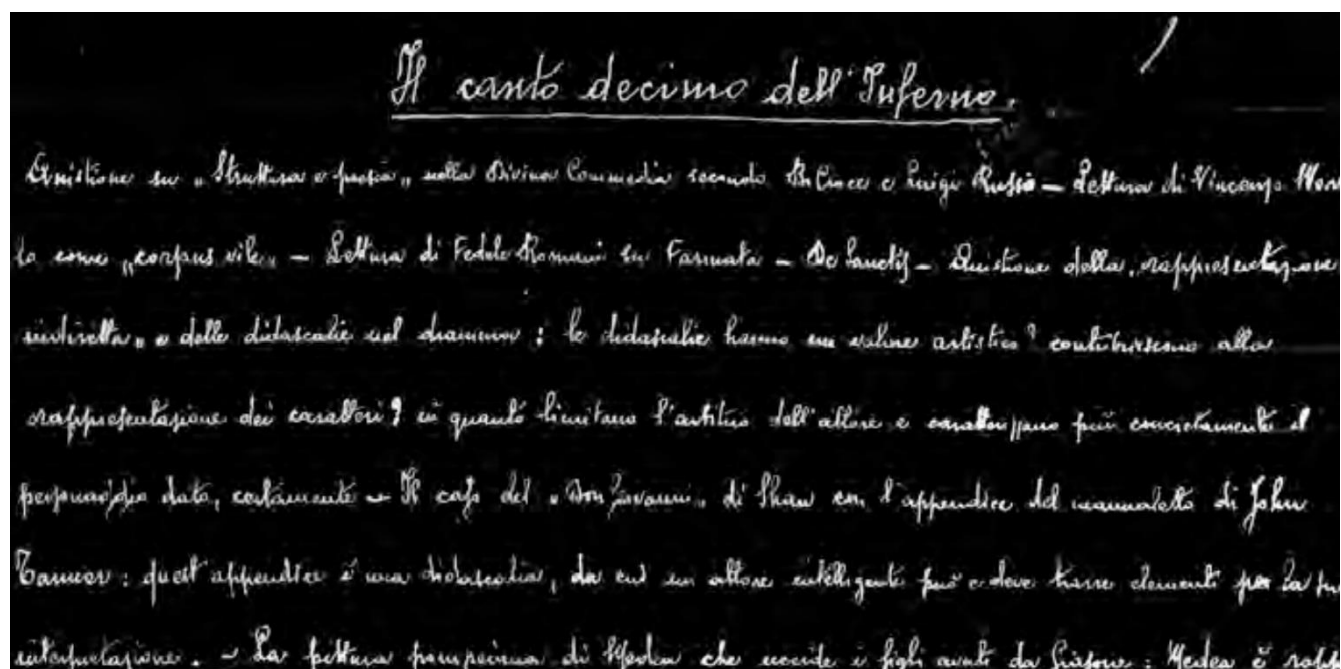 Il canto decimo dell'Inferno.
Quistione su „Struttura e poesia„ nella Divina Commedia secondo B. Croce e Luigi Russo — Lettura di Vincenzo
to come „corpus vile„ — Lettura di Fedele Romani su Farinata — De Sanctis — Quistione della „rappresentazione
indiretta„ e delle didascalie nel dramma: le didascalie hanno un valore artistico? contribuiscono alla
rappresentazione dei caratteri? in quanto limitano l'arbitrio dell'attore e caratterizzano più concretamente il
personaggio dato, certamente — Il caso del „Don Giovanni„ di Shaw con l'appendice del manualetto di John
Tanner: quest'appendice è una didascalia, da cui un attore intelligente può e deve trarre elementi per la su
interpretazione. — La pittura pompeiana di Medea che uccide i figli avuti da Giasone: Medea è